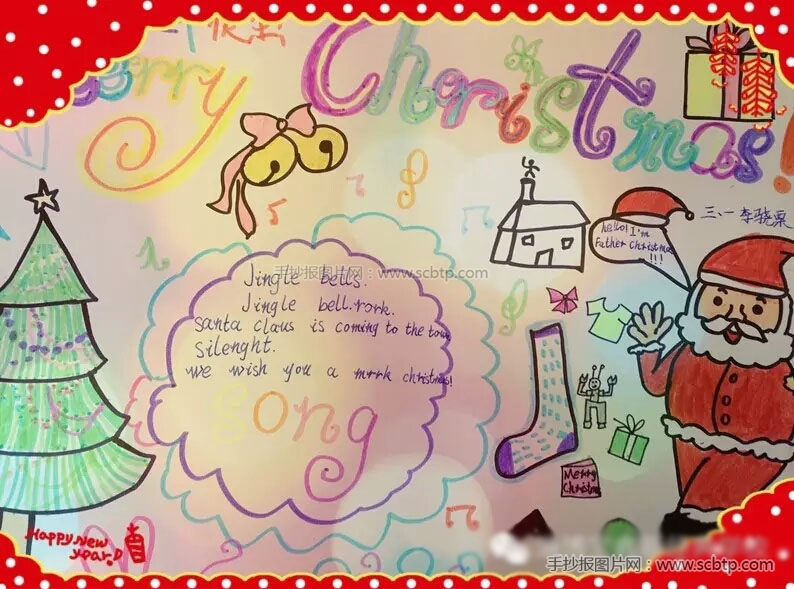 快乐
Merry Christmas!
三、一 李骁栗
hello! I'm
Father Christmas
!!!
手抄报图片网：www.scbtp.com
Jingle bells.
Jingle bell.rork.
Santa claus is coming to the town
Silenght.
We wish you a mrrk christmas!
Song
Merry
Christmas
Happy New
year!
手抄报图片网：www.scbtp.com